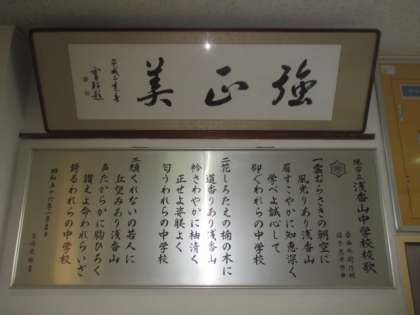 強正美
堺市立浅香山中学校校歌
一、雲むらさきの朝空に
風光りあり浅香山
眉すこやかに知恵深く
学べよ誠心して
仰ぐわれらの中学校
二、花しろたえの楠の木に
道香りあり浅香山
衿さわやかに袖清く
正せよ姿躾よく
匂うわれらの中学校
三、頬くれないの若人に
丘望みあり浅香山
声たからかに胸ひろく
讃えよ命われらいざ
誇るわれらの中学校
昭和五十六年一月